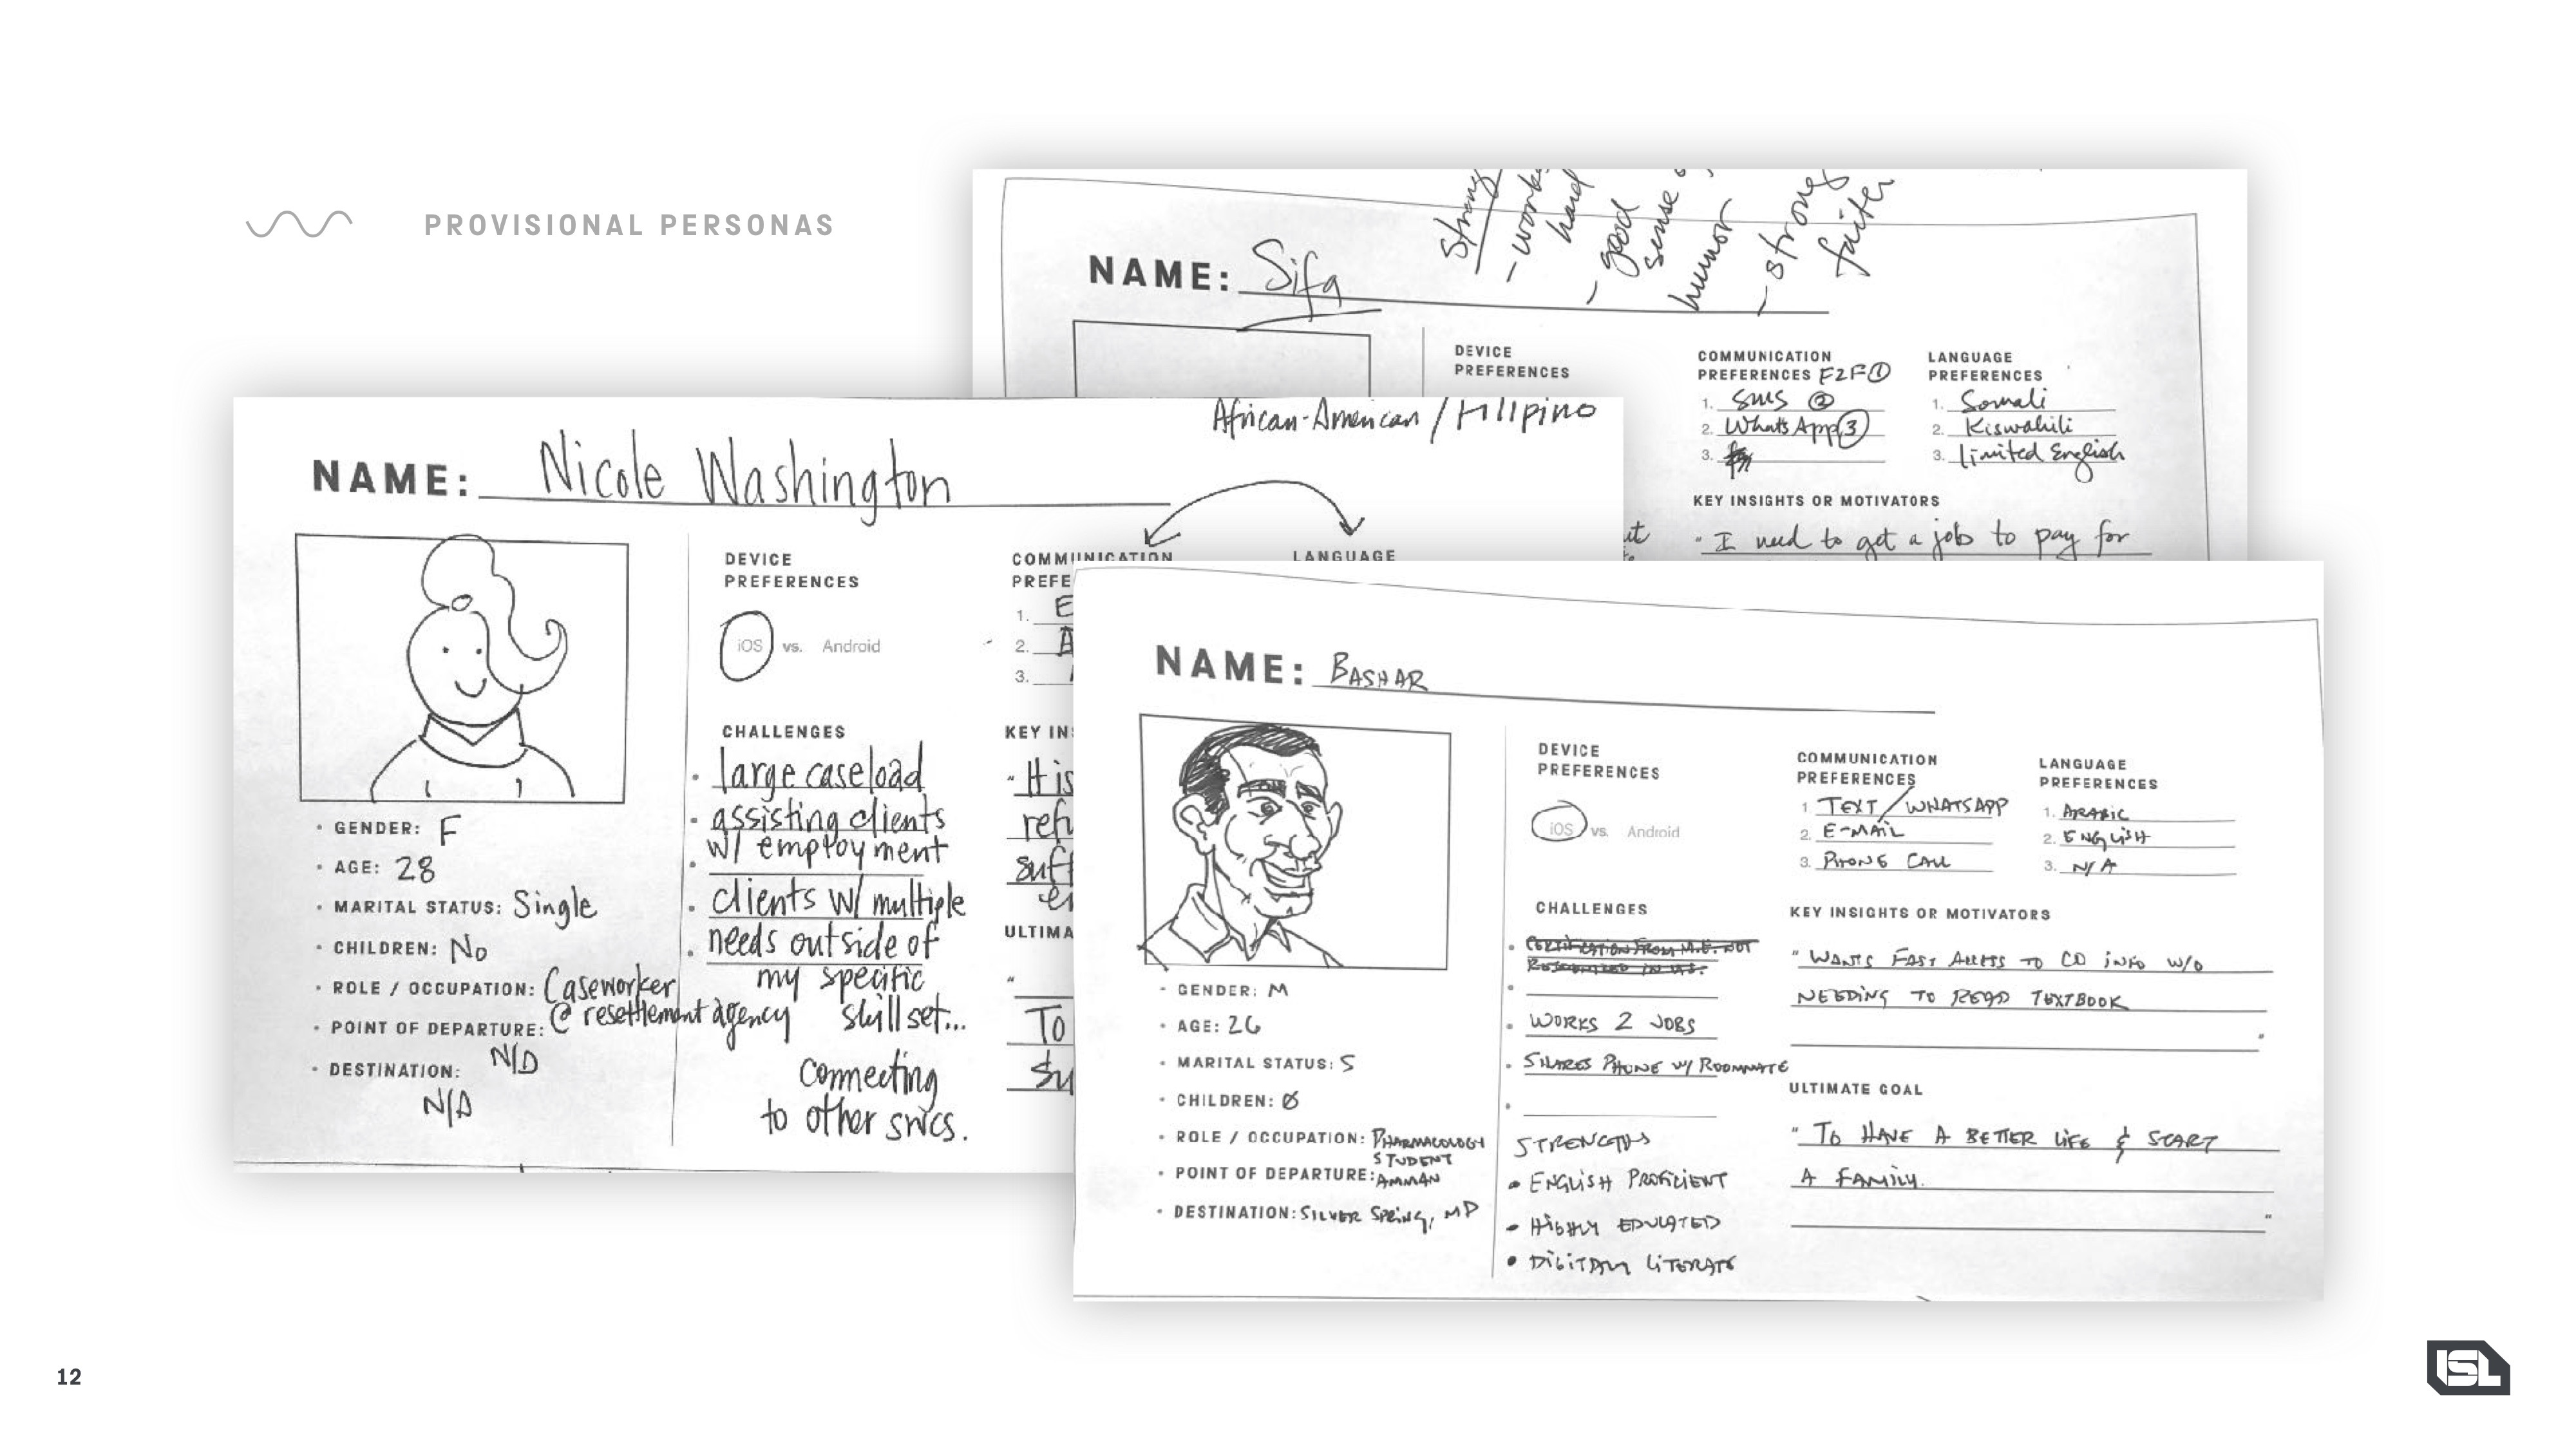 PROVISIONAL PERSONAS
NAME: Sifa
strong
- work
hard
- good
sense
humor
- strong
DEVICE
PREFERENCES
COMMUNICATION
PREFERENCES F2F ①
1. SMS ②
2. WhatsApp ③
3.
LANGUAGE
PREFERENCES
1. Somali
2. Kiswahili
3. limited English
KEY INSIGHTS OR MOTIVATORS
" I need to get a job to pay for
African-American / Filipino
NAME: Nicole Washington
• GENDER: F
• AGE: 28
• MARITAL STATUS: Single
• CHILDREN: No
• ROLE / OCCUPATION: Caseworker
@ resettlement agency
• POINT OF DEPARTURE:
N/A
• DESTINATION:
N/A
DEVICE
PREFERENCES
iOS vs. Android
CHALLENGES
• large caseload
• assisting clients
• w/ employment
• clients w/ multiple
• needs outside of
my specific
skillset...
Connecting
to other svcs.
COMMUNICATION
PREFE
1. E
2.
3.
LANGUAGE
KEY IN
" It is
refu
suff
ULTIMA
"
To
su
NAME: BASHAR
• GENDER: M
• AGE: 26
• MARITAL STATUS: S
• CHILDREN: Ø
• ROLE / OCCUPATION: PHARMACOLOGY
STUDENT
• POINT OF DEPARTURE: AMMAN
• DESTINATION: SILVER SPRING, MD
DEVICE
PREFERENCES
iOS vs. Android
CHALLENGES
• CERTIFICATION FROM M.E. NOT
RECOGNIZED IN U.S.
• WORKS 2 JOBS
• SHARES PHONE W/ ROOMMATE
STRENGTHS
• ENGLISH PROFICIENT
• HIGHLY EDUCATED
• DIGITALLY LITERATE
COMMUNICATION
PREFERENCES
1. TEXT / WHATSAPP
2. E-MAIL
3. PHONE CALL
LANGUAGE
PREFERENCES
1. ARABIC
2. ENGLISH
3. N/A
KEY INSIGHTS OR MOTIVATORS
" WANTS FAST ACCESS TO CO INFO W/O
NEEDING TO READ TEXTBOOK
"
ULTIMATE GOAL
" TO HAVE A BETTER LIFE & START
A FAMILY.
"
12
ISL